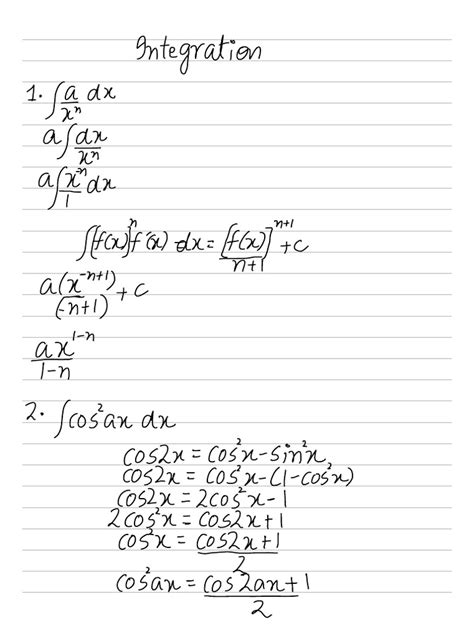 Integration
1. ∫ a/xⁿ dx
a∫ dx/xⁿ
a∫ x⁻ⁿ/1 dx
∫[f(x)]ⁿ f'(x) dx = [f(x)]ⁿ⁺¹/n+1 + c
a(x⁻ⁿ⁺¹)/(-n+1) + c
ax¹⁻ⁿ/1-n
2. ∫cos²ax dx
cos2x = cos²x - sin²x
cos2x = cos²x - (1 - cos²x)
cos2x = 2cos²x - 1
2cos²x = cos2x + 1
cos²x = cos2x + 1/2
cos²ax = cos2ax + 1/2